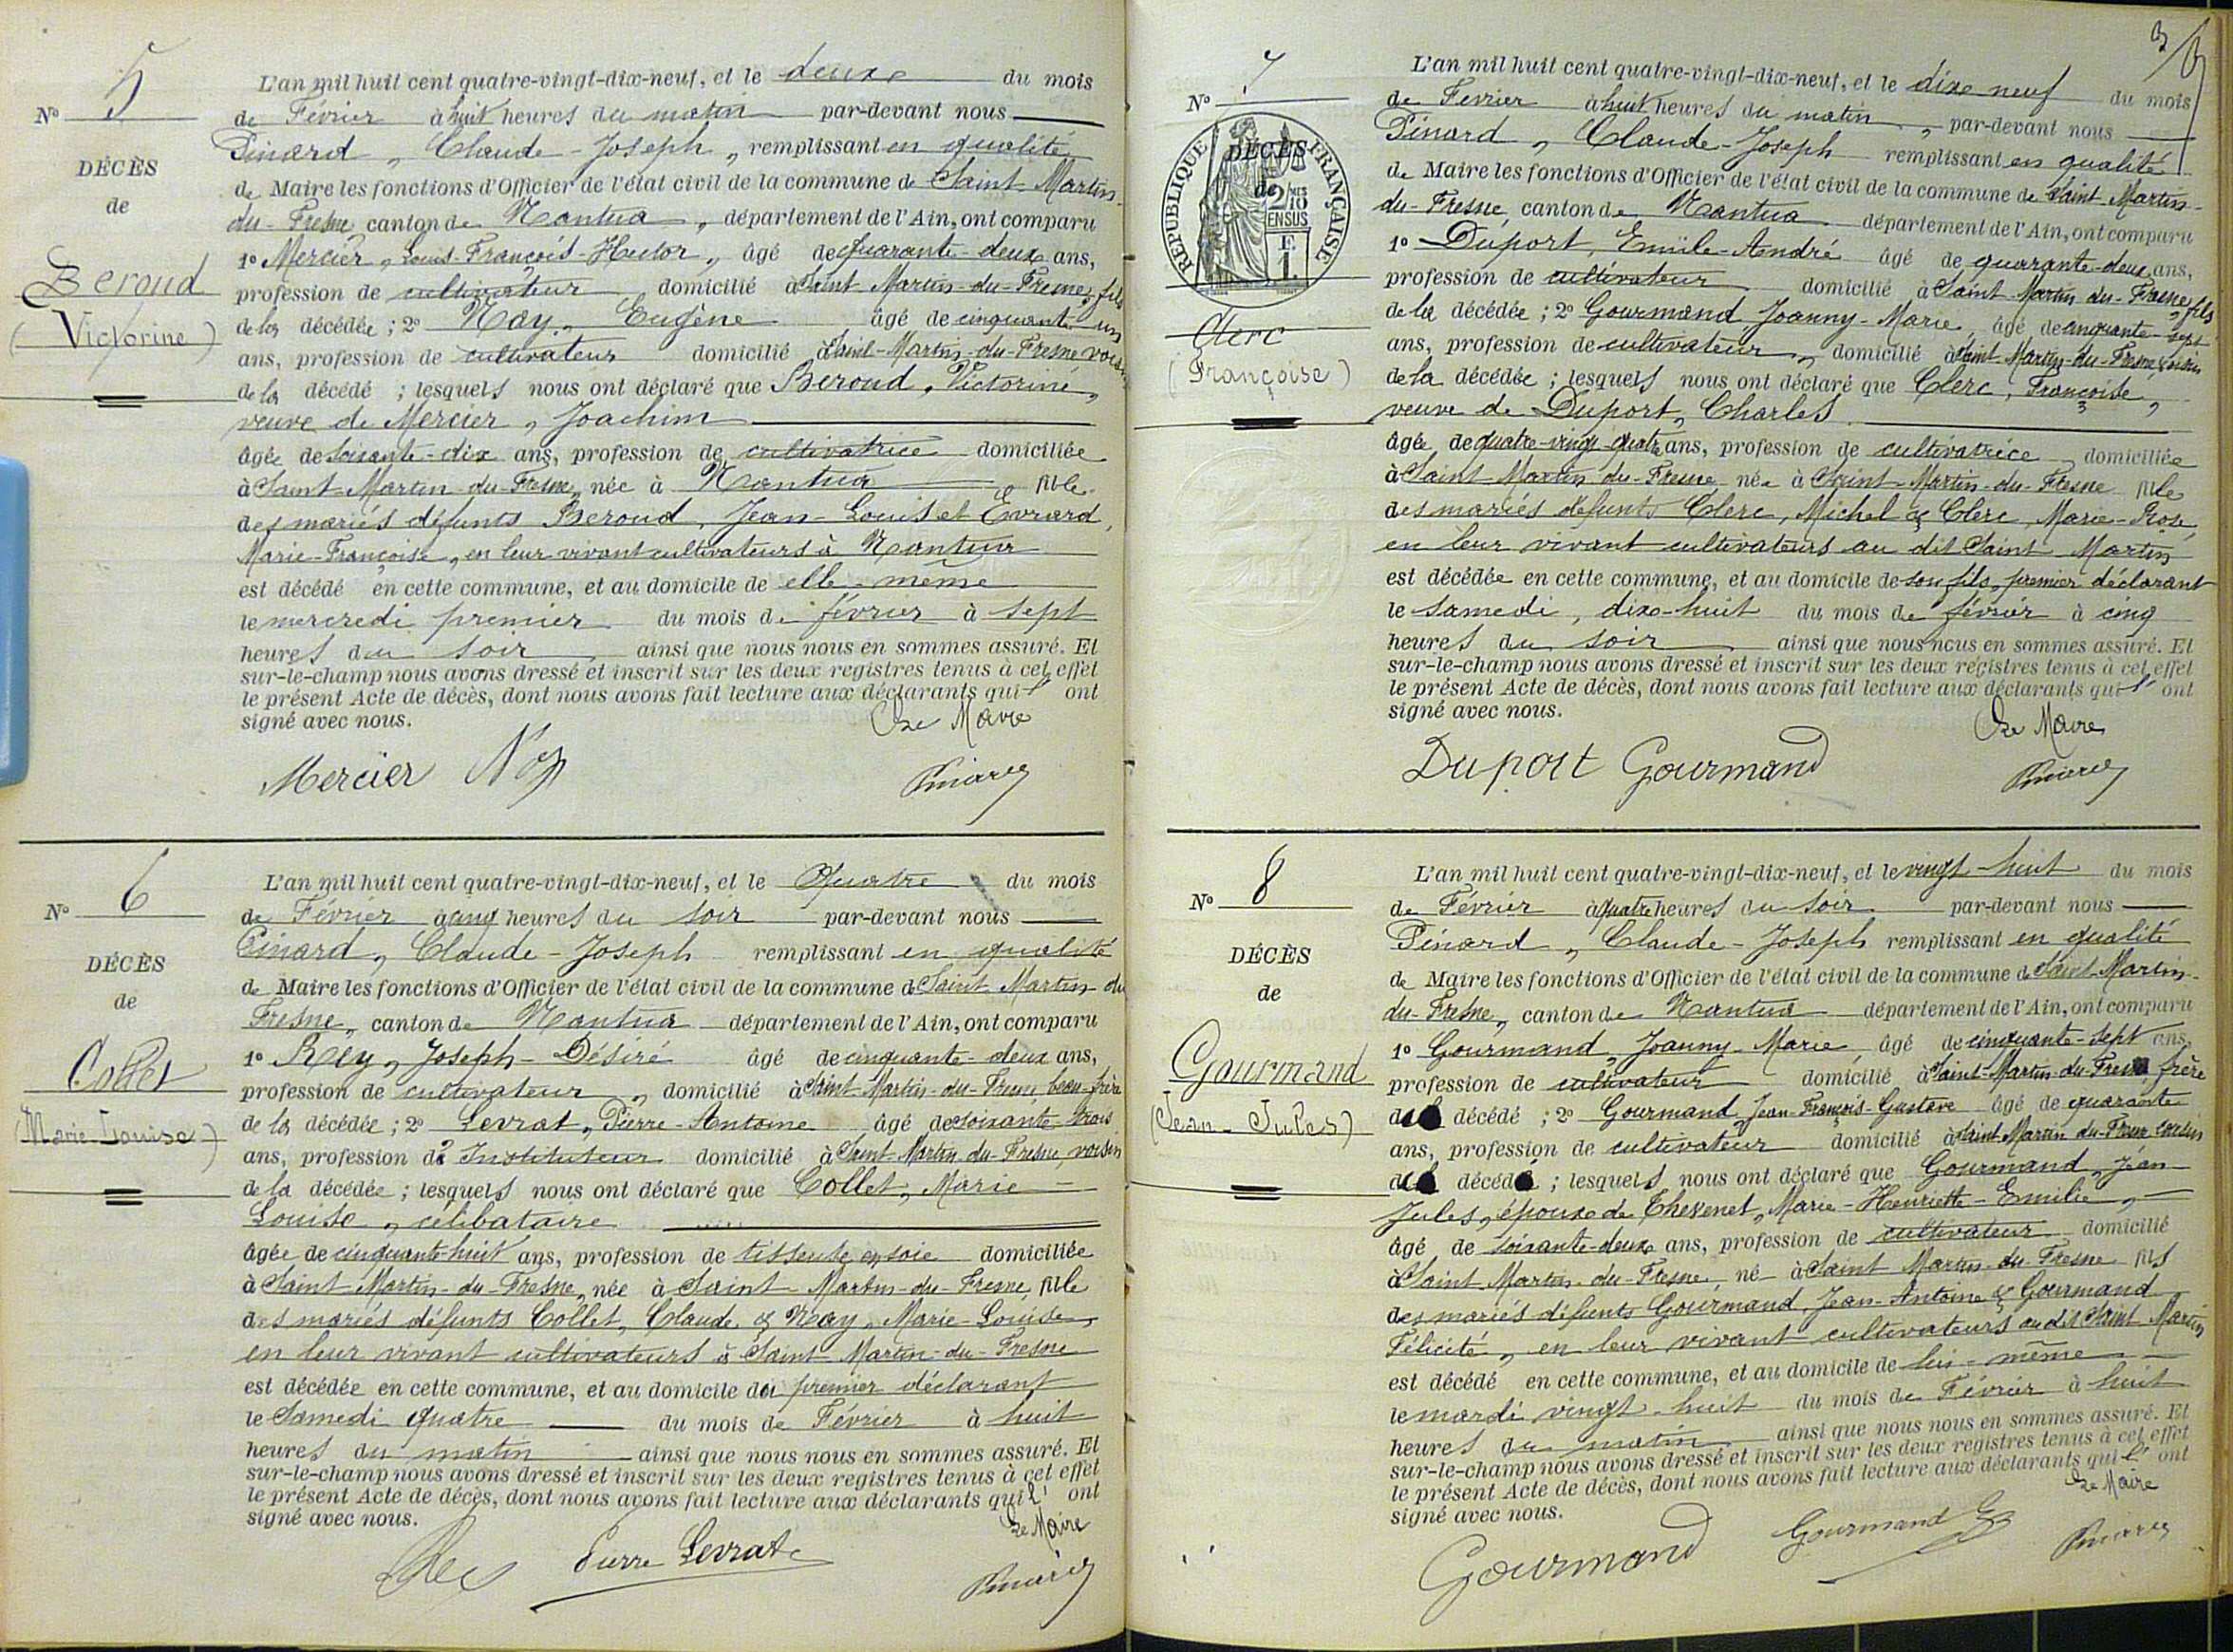 5
L'an mil huit cent quatre-vingt-dix-neuf, et le deux du mois
No
de Février à huit heures du matin par-devant nous
DÉCÈS
Pinard, Claude-Joseph, remplissant en qualité
de
de Maire les fonctions d'Officier de l'état civil de la commune de Saint-Martin-
du-Fresne, canton de Nantua, département de l'Ain, ont comparu
1o Mercier, Louis-François-Hector, âgé de quarante-deux ans,
Beroud
profession de cultivateur domicilié à Saint Martin-du-Fresne, fils
(Victorine)
de la décédée ; 2o Nay, Eugène âgé de cinquante-un
ans, profession de cultivateur domicilié à Saint-Martin-du-Fresne voisin
de la décédé ; lesquels nous ont déclaré que Beroud, Victorine,
veuve de Mercier, Joachim
âgée de soixante-dix ans, profession de cultivatrice domiciliée
à Saint Martin-du-Fresne, née à Nantua fille
des mariés défunts Beroud, Jean-Louis et Evrard,
Marie-Françoise, en leur vivant cultivateurs à Nantua
est décédé en cette commune, et au domicile de elle-même
le mercredi premier du mois de février à sept
heures du soir ainsi que nous nous en sommes assuré. Et
sur-le-champ nous avons dressé et inscrit sur les deux registres tenus à cet effet
le présent Acte de décès, dont nous avons fait lecture aux déclarants qui l' ont
signé avec nous.
Le Maire
Mercier Nay Pinard
6
L'an mil huit cent quatre-vingt-dix-neuf, et le Quatre du mois
No
de Février à cinq heures du soir par-devant nous
DÉCÈS
Pinard, Claude-Joseph remplissant en qualité
de
de Maire les fonctions d'Officier de l'état civil de la commune de Saint Martin-du
Fresne, canton de Nantua département de l'Ain, ont comparu
1o Rey, Joseph-Désiré âgé de cinquante-deux ans,
Collet
profession de cultivateur, domicilié à Saint Martin-du-Fresne, beau-frère
(Marie-Louise)
de la décédée ; 2o Levrat, Pierre-Antoine âgé de soixante-trois
ans, profession d' Instituteur domicilié à Saint Martin-du-Fresne, voisin
de la décédée ; lesquels nous ont déclaré que Collet, Marie-
Louise, célibataire
âgée de cinquante-huit ans, profession de tisseuse en soie domiciliée
à Saint Martin-du-Fresne, née à Saint-Martin-du-Fresne, fille
des mariés défunts Collet, Claude, & Nay, Marie-Louise,
en leur vivant cultivateurs à Saint Martin-du-Fresne
est décédée en cette commune, et au domicile du premier déclarant
le Samedi quatre du mois de Février à huit
heures du matin ainsi que nous nous en sommes assuré. Et
sur-le-champ nous avons dressé et inscrit sur les deux registres tenus à cet effet
le présent Acte de décès, dont nous avons fait lecture aux déclarants qui l' ont
signé avec nous.
Le Maire
Rey Pierre Levrat Pinard
3
7
L'an mil huit cent quatre-vingt-dix-neuf, et le dix neuf du mois
No
de Février à huit heures du matin, par-devant nous
RÉPUBLIQUE FRANÇAISE
2/10
EN SUS
F.
1.
DÉCÈS
de
Pinard, Claude-Joseph remplissant en qualité
de Maire les fonctions d'Officier de l'état civil de la commune de Saint Martin-
du-Fresne, canton de Nantua département de l'Ain, ont comparu
1o Duport, Emile-André âgé de quarante-deux ans,
profession de cultivateur domicilié à Saint-Martin-du-Fresne, fils
Clerc
de la décédée ; 2o Gourmand, Joanny-Marie, âgé de cinquante-sept
(Françoise)
ans, profession de cultivateur, domicilié à Saint-Martin-du-Fresne, voisin
de la décédée ; lesquels nous ont déclaré que Clerc, Françoise,
veuve de Duport, Charles
âgée de quatre-vingt-quatre ans, profession de cultivatrice, domiciliée
à Saint Martin-du-Fresne née à Saint-Martin-du-Fresne fille
des mariés défunts Clerc, Michel & Clerc, Marie-Rose,
en leur vivant cultivateurs au dit Saint Martin
est décédée en cette commune, et au domicile de son fils, premier déclarant
le Samedi, dix-huit du mois de février à cinq
heures du soir ainsi que nous nous en sommes assuré. Et
sur-le-champ nous avons dressé et inscrit sur les deux registres tenus à cet effet
le présent Acte de décès, dont nous avons fait lecture aux déclarants qui l' ont
signé avec nous.
Le Maire
Duport Gourmand Pinard
8
L'an mil huit cent quatre-vingt-dix-neuf, et le vingt-huit du mois
No
de Février à quatre heures du soir par-devant nous
DÉCÈS
Pinard, Claude-Joseph remplissant en qualité
de
de Maire les fonctions d'Officier de l'état civil de la commune de Saint-Martin-
du-Fresne, canton de Nantua département de l'Ain, ont comparu
1o Gourmand, Joanny-Marie âgé de cinquante-sept ans,
Gourmand
profession de cultivateur domicilié à Saint-Martin-du-Fresne frère
(Jean-Jules)
du décédé ; 2o Gourmand, Jean-François-Gustave âgé de quarante
ans, profession de cultivateur domicilié à Saint Martin-du-Fresne cousin
du décédé ; lesquels nous ont déclaré que Gourmand, Jean-
Jules, époux de Thevenet, Marie-Henriette-Emilie,
âgé de soixante-deux ans, profession de cultivateur domicilié
à Saint Martin-du-Fresne, né à Saint Martin-du-Fresne fils
des mariés défunts Gourmand, Jean-Antoine & Gourmand
Félicité, en leur vivant cultivateurs au dit Saint Martin
est décédé en cette commune, et au domicile de lui-même
le mardi vingt-huit du mois de Février à huit
heures du matin ainsi que nous nous en sommes assuré. Et
sur-le-champ nous avons dressé et inscrit sur les deux registres tenus à cet effet
le présent Acte de décès, dont nous avons fait lecture aux déclarants qui l' ont
signé avec nous.
Le Maire
Gourmand Gourmand G Pinard